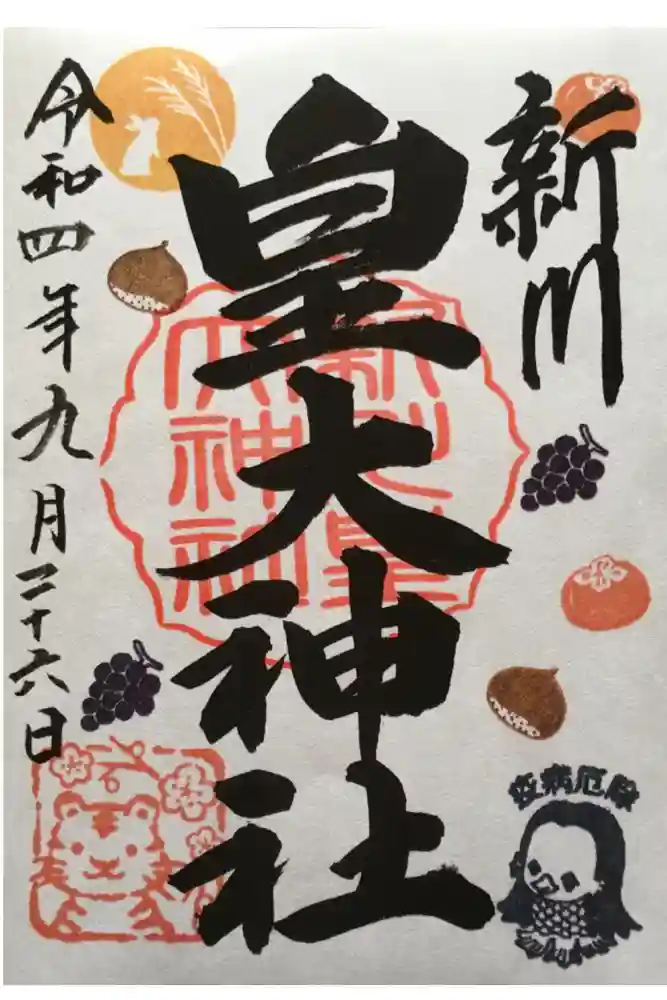 新川
皇大神社
新川皇大神社
令和四年九月二十六日
疫病厄除